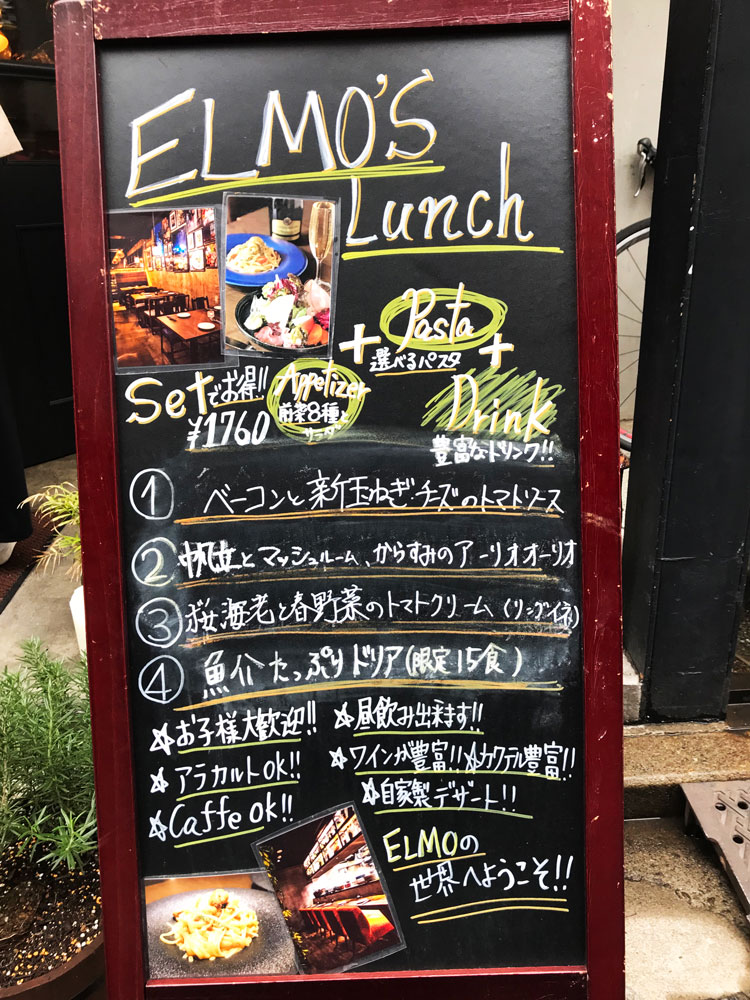 ELMO'S
Lunch
+ Pasta +
選べるパスタ
Setでお得!!
¥1760
Appetizer
前菜8種と
サラダ
Drink
豊富なドリンク!!
① ベーコンと新玉ねぎチーズのトマトソース
② 帆立とマッシュルーム、からすみのアーリオオーリオ
③ 桜海老と春野菜のトマトクリーム(リングイネ)
④ 魚介たっぷりドリア(限定15食)
☆お子様大歓迎!!
☆昼飲み出来ます!!
☆アラカルトok!!
☆ワインが豊富!!☆カクテル豊富!!
☆Caffe ok!!
☆自家製デザート!!
ELMOの
世界へようこそ!!